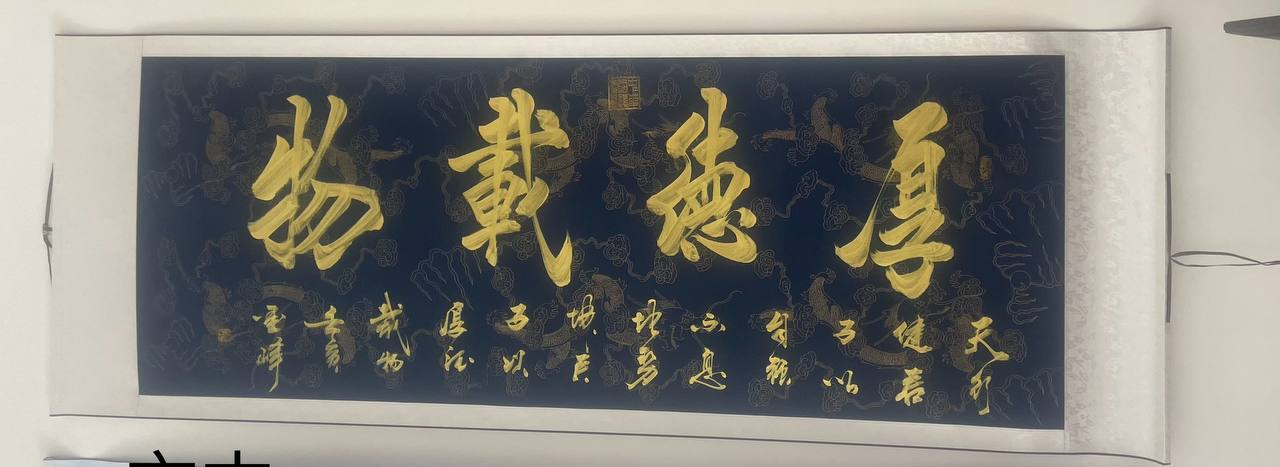 厚德載物
天行
健君
子以
自强
不息
地势
坤君
子以
厚德
载物
壬寅
峰